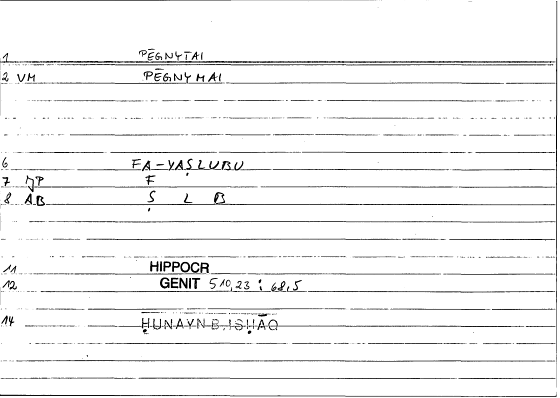 1 PĒGNYTAI
2 VM PĒGNYMAI
6 FA-YAṢLUBU
7 F
8 AB Ṣ L B
11 HIPPOCR
12 GENIT 510,23 : 68,5
14 ḤUNAYN B. ISḤĀQ